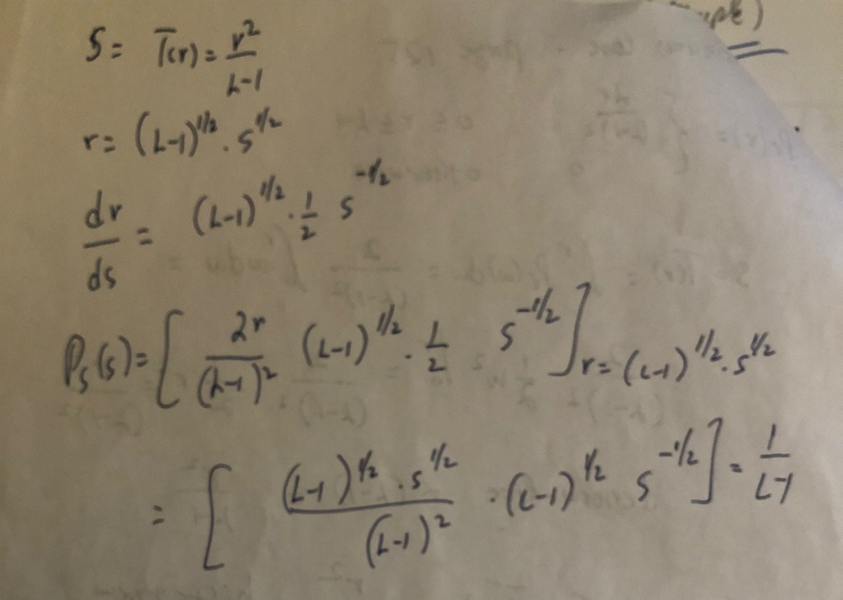 S = T(r) = r²/L-1
r = (L-1)^1/2 . S^1/2
dr/ds = (L-1)^1/2 . 1/2 S^-1/2
Ps(s) = [ 2r/(L-1)² (L-1)^1/2 . 1/2 S^-1/2 ] r = (L-1)^1/2 . S^1/2
= [ (L-1)^1/2 . S^1/2/(L-1)² . (L-1)^1/2 S^-1/2 ] = 1/L-1